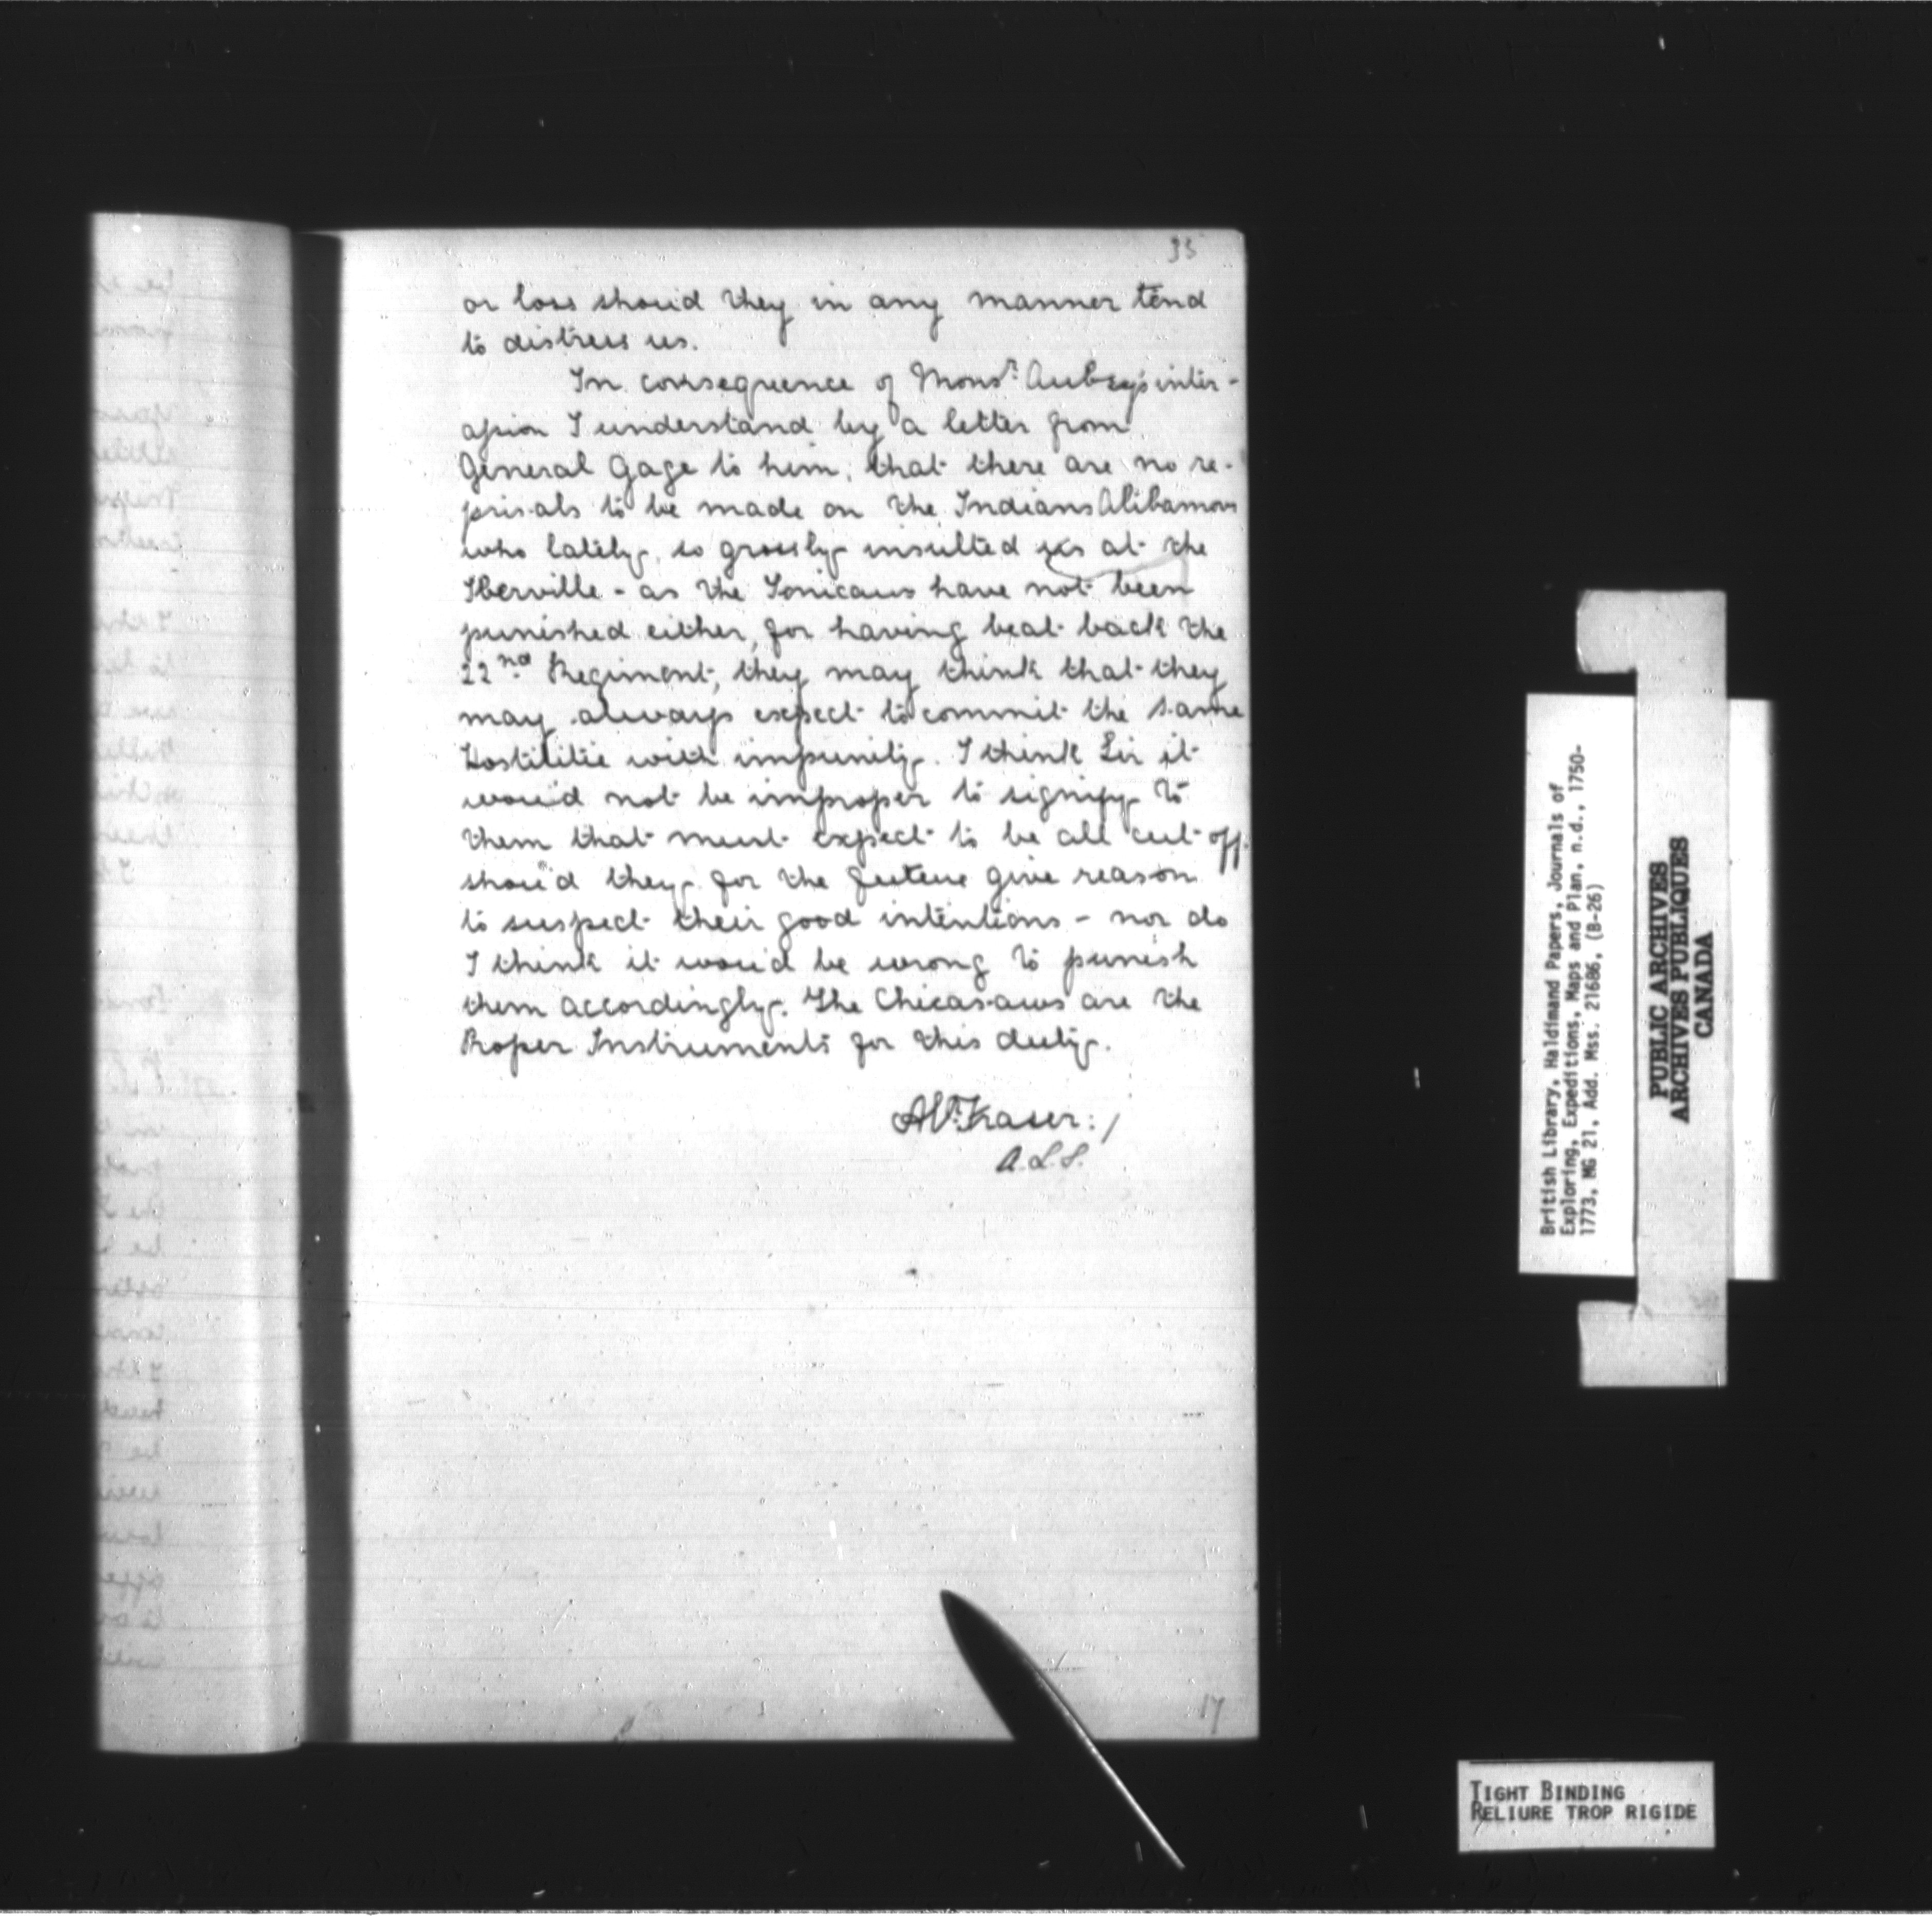 35
or loss shou'd they in any manner tend
to distress us.
In consequence of Monsr. Aubry's inter-
assion I understand by a letter from
General Gage to him, that there are no re-
prisals to be made on the Indians Alibamons
who lately so grossly insulted us at the
Iberville - as the Tonicaws have not been
punished either, for having beat back the
22nd. Regiment, they may think that they
may always expect to commit the same
Hostilitie with impunity. I think Sir it
wou'd not be improper to signify to
them that must expect to be all cut off.
shou'd they for the future give reason
to suspect their good intentions - nor do
I think it wou'd be wrong to punish
them accordingly. The Chicasaws are the
Proper Instruments for this duty.
Fraser:/
A.L.S.
17
British Library, Haldimand Papers, Journals of
Exploring, Expeditions, Maps and Plan, n.d., 1750-
1773, MG 21, Add. Mss. 21686, (B-26)
PUBLIC ARCHIVES
ARCHIVES PUBLIQUES
CANADA
TIGHT BINDING
RELIURE TROP RIGIDE